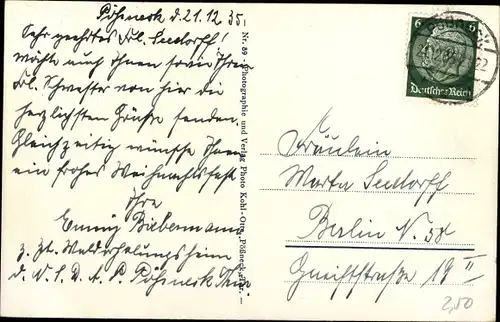 Pößneck d. 21.12.35.
Sehr geehrtes Frl. Seedorff!
möchte auch Ihnen sowie Ihrer
Frl. Schwester von hier die
herzlichsten Grüße senden.
Gleichzeitig wünsche Ihnen
ein frohes Weihnachtsfest
Ihre
Emmy Biebermann
z. Zt. Walderholungsheim
d. N.S.D.A.P. Pößneck Thür.
Nr. 89 · Photographie und Verlag Photo Kohl-Otto, Pößneck,
6
Deutsches Reich
22
Fräulein
Marta Seedorff
Berlin N. 58
Greifstraße 19 II
2,50